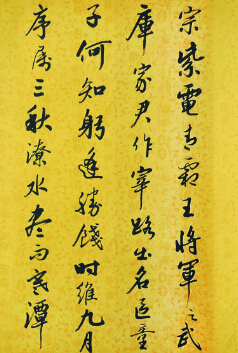 宗紫電青霜王將軍之武
庫家君作宰路出名區童
子何知躬逢勝餞時維九月
序屬三秋潦水盡而寒潭